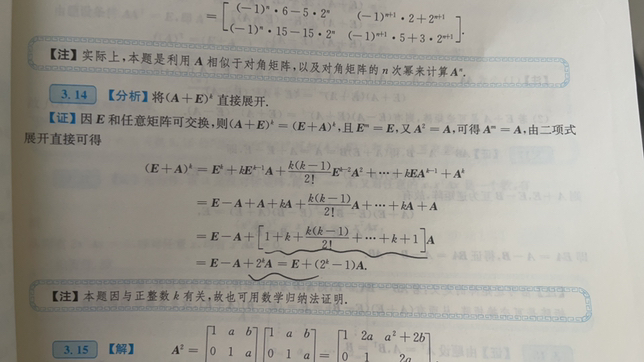 = [(-1)ⁿ·6-5·2ⁿ (-1)ⁿ⁺¹·2+2ⁿ⁺¹
(-1)ⁿ·15-15·2ⁿ (-1)ⁿ⁺¹·5+3·2ⁿ⁺¹].
【注】实际上,本题是利用 A 相似于对角矩阵,以及对角矩阵的 n 次幂来计算 Aⁿ.
3.14 【分析】将(A+E)ᵏ 直接展开.
【证】因 E 和任意矩阵可交换,则(A+E)ᵏ=(E+A)ᵏ,且 Eᵐ=E,又 A²=A,可得 Aᵐ=A,由二项式
展开直接可得
(E+A)ᵏ=Eᵏ+kEᵏ⁻¹A+k(k-1)/2! Eᵏ⁻²A²+⋯+kEAᵏ⁻¹+Aᵏ
=E-A+A+kA+k(k-1)/2! A+⋯+kA+A
=E-A+[1+k+k(k-1)/2!+⋯+k+1]A
=E-A+2ᵏA=E+(2ᵏ-1)A.
【注】本题因与正整数 k 有关,故也可用数学归纳法证明.
3.15 【解】 A²=[1 a b [1 a b = [1 2a a²+2b
0 1 a 0 1 a 0 1 2a